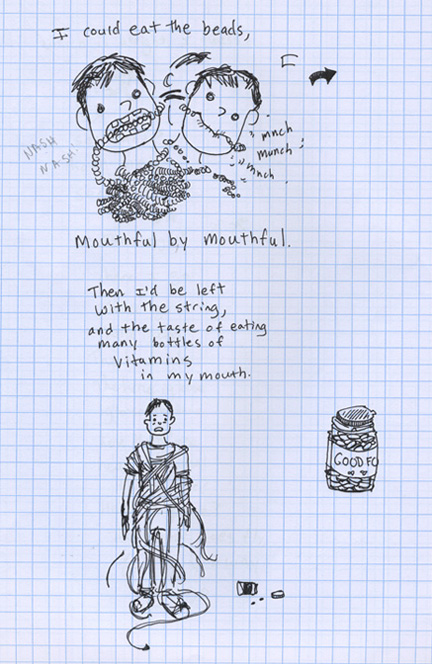 I could eat the beads,
NASH
NASH!
mnch
munch
mnch
Mouthful by mouthful.
Then I'd be left
with the string,
and the taste of eating
many bottles of
vitamins
in my mouth.
GOOD FO